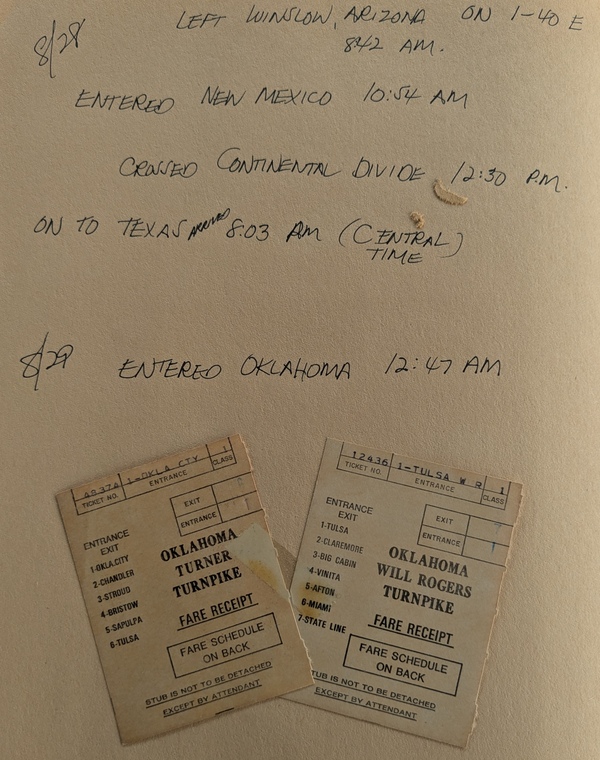 8/28
LEFT WINSLOW, ARIZONA ON I-40 E
842 AM.
ENTERED NEW MEXICO 10:54 AM
CROSSED CONTINENTAL DIVIDE 12:30 P.M.
ON TO TEXAS 8:03 PM (CENTRAL
TIME)
8/29
ENTERED OKLAHOMA 12:47 AM
1-OKLA CTY 1
TICKET NO. ENTRANCE CLASS
EXIT
ENTRANCE
ENTRANCE
EXIT
1-OKLA.CITY
2-CHANDLER
3-STROUD
4-BRISTOW
5-SAPULPA
6-TULSA
OKLAHOMA
TURNER
TURNPIKE
FARE RECEIPT
FARE SCHEDULE
ON BACK
STUB IS NOT TO BE DETACHED
EXCEPT BY ATTENDANT
12436 1-TULSA W R 1
TICKET NO. ENTRANCE CLASS
EXIT
ENTRANCE
ENTRANCE
EXIT
1-TULSA
2-CLAREMORE
3-BIG CABIN
4-VINITA
5-AFTON
6-MIAMI
7-STATE LINE
OKLAHOMA
WILL ROGERS
TURNPIKE
FARE RECEIPT
FARE SCHEDULE
ON BACK
STUB IS NOT TO BE DETACHED
EXCEPT BY ATTENDANT